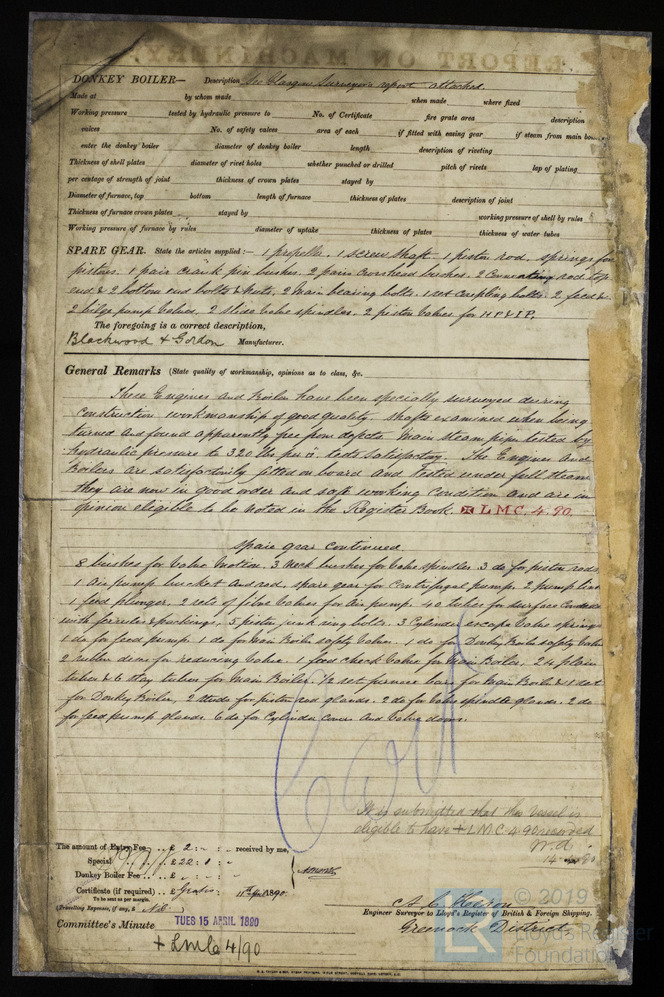 REPORT ON MACHINERY.
DONKEY BOILER— Description See Glasgow Surveyor's report attached.
Made at by whom made when made where fixed
Working pressure tested by hydraulic pressure to No. of Certificate fire grate area description
valves No. of safety valves area of each if fitted with easing gear if steam from main bo
enter the donkey boiler diameter of donkey boiler length description of riveting
Thickness of shell plates diameter of rivet holes whether punched or drilled pitch of rivets lap of plating
per centage of strength of joint thickness of crown plates stayed by
Diameter of furnace, top bottom length of furnace thickness of plates description of joint
Thickness of furnace crown plates stayed by working pressure of shell by rules
Working pressure of furnace by rules diameter of uptake thickness of plates thickness of water tubes
SPARE GEAR. State the articles supplied:— 1 propeller. 1 screw shaft. 1 piston rod, springs for
pistons. 1 pair crank pin bushes. 2 pairs crosshead bushes. 2 connecting rod top
end & 2 bottom end bolts & nuts. 2 main bearing bolts. 1 set coupling bolts. 2 feed &
2 bilge pump valves. 2 slide valve spindles. 2 piston valves for H.P. & I.P.
The foregoing is a correct description,
Blackwood & Gordon Manufacturer.
General Remarks (State quality of workmanship, opinions as to class, &c.
These Engines and Boilers have been specially surveyed during
construction workmanship of good quality. Shafts examined when being
turned and found apparently free from defects. Main steam pipes tested by
hydraulic pressure to 320 lbs. per □" tests satisfactory. The Engines and
Boilers are satisfactorily fitted on board and tested under full steam
they are now in good order and safe working condition and are in
opinion eligible to be noted in the Register Book. ✠ L.M.C. 4.90.
Spare gear continued
8 bushes for valve motion. 3 neck bushes for valve spindles. 3 do for piston rods
1 air pump bucket and rod, spare gear for centrifugal pump. 2 pump
1 feed plunger. 2 sets of fibre valves for air pump. 40 tubes for surface condens
with ferrules & packings, 5 piston junk ring bolts. 3 Cylinder escape valve springs
1 do for feed pump. 1 do for Main Boiler safety valve. 1 do for Donkey Boiler safety valve
2 rubber discs for reducing valve. 1 feed check valve for Main Boiler, 24 plain
tubes & 6 stay tubes for Main Boiler. ½ set furnace bars for Main Boiler & 1 set
for Donkey Boiler, 2 studs for piston rod glands. 2 do for valve spindle glands. 2 do
for feed pump glands. 6 do for Cylinder covers and valve doors.
It is submitted that this vessel is
eligible to have + LMC 4.90 recorded
14 90
The amount of Entry Fee .. £ 2 : - : - received by me,
Special .. £ 22 : 0 : -
Donkey Boiler Fee .. £ - : - : -
Certificate (if required) .. £ gratis : 1890.
To be sent as per margin.
(Travelling Expenses, if any, £ Nil.)
Engineer Surveyor to Lloyd's Register of British & Foreign Shipping.
Greenock District
Committee's Minute TUES 15 APRIL 1890
+ LMC 4/90
© 2019
LR
Lloyd's Register
Foundation